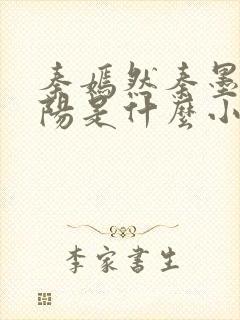 秦嫣然秦墨
陽是什麼小
李家書生